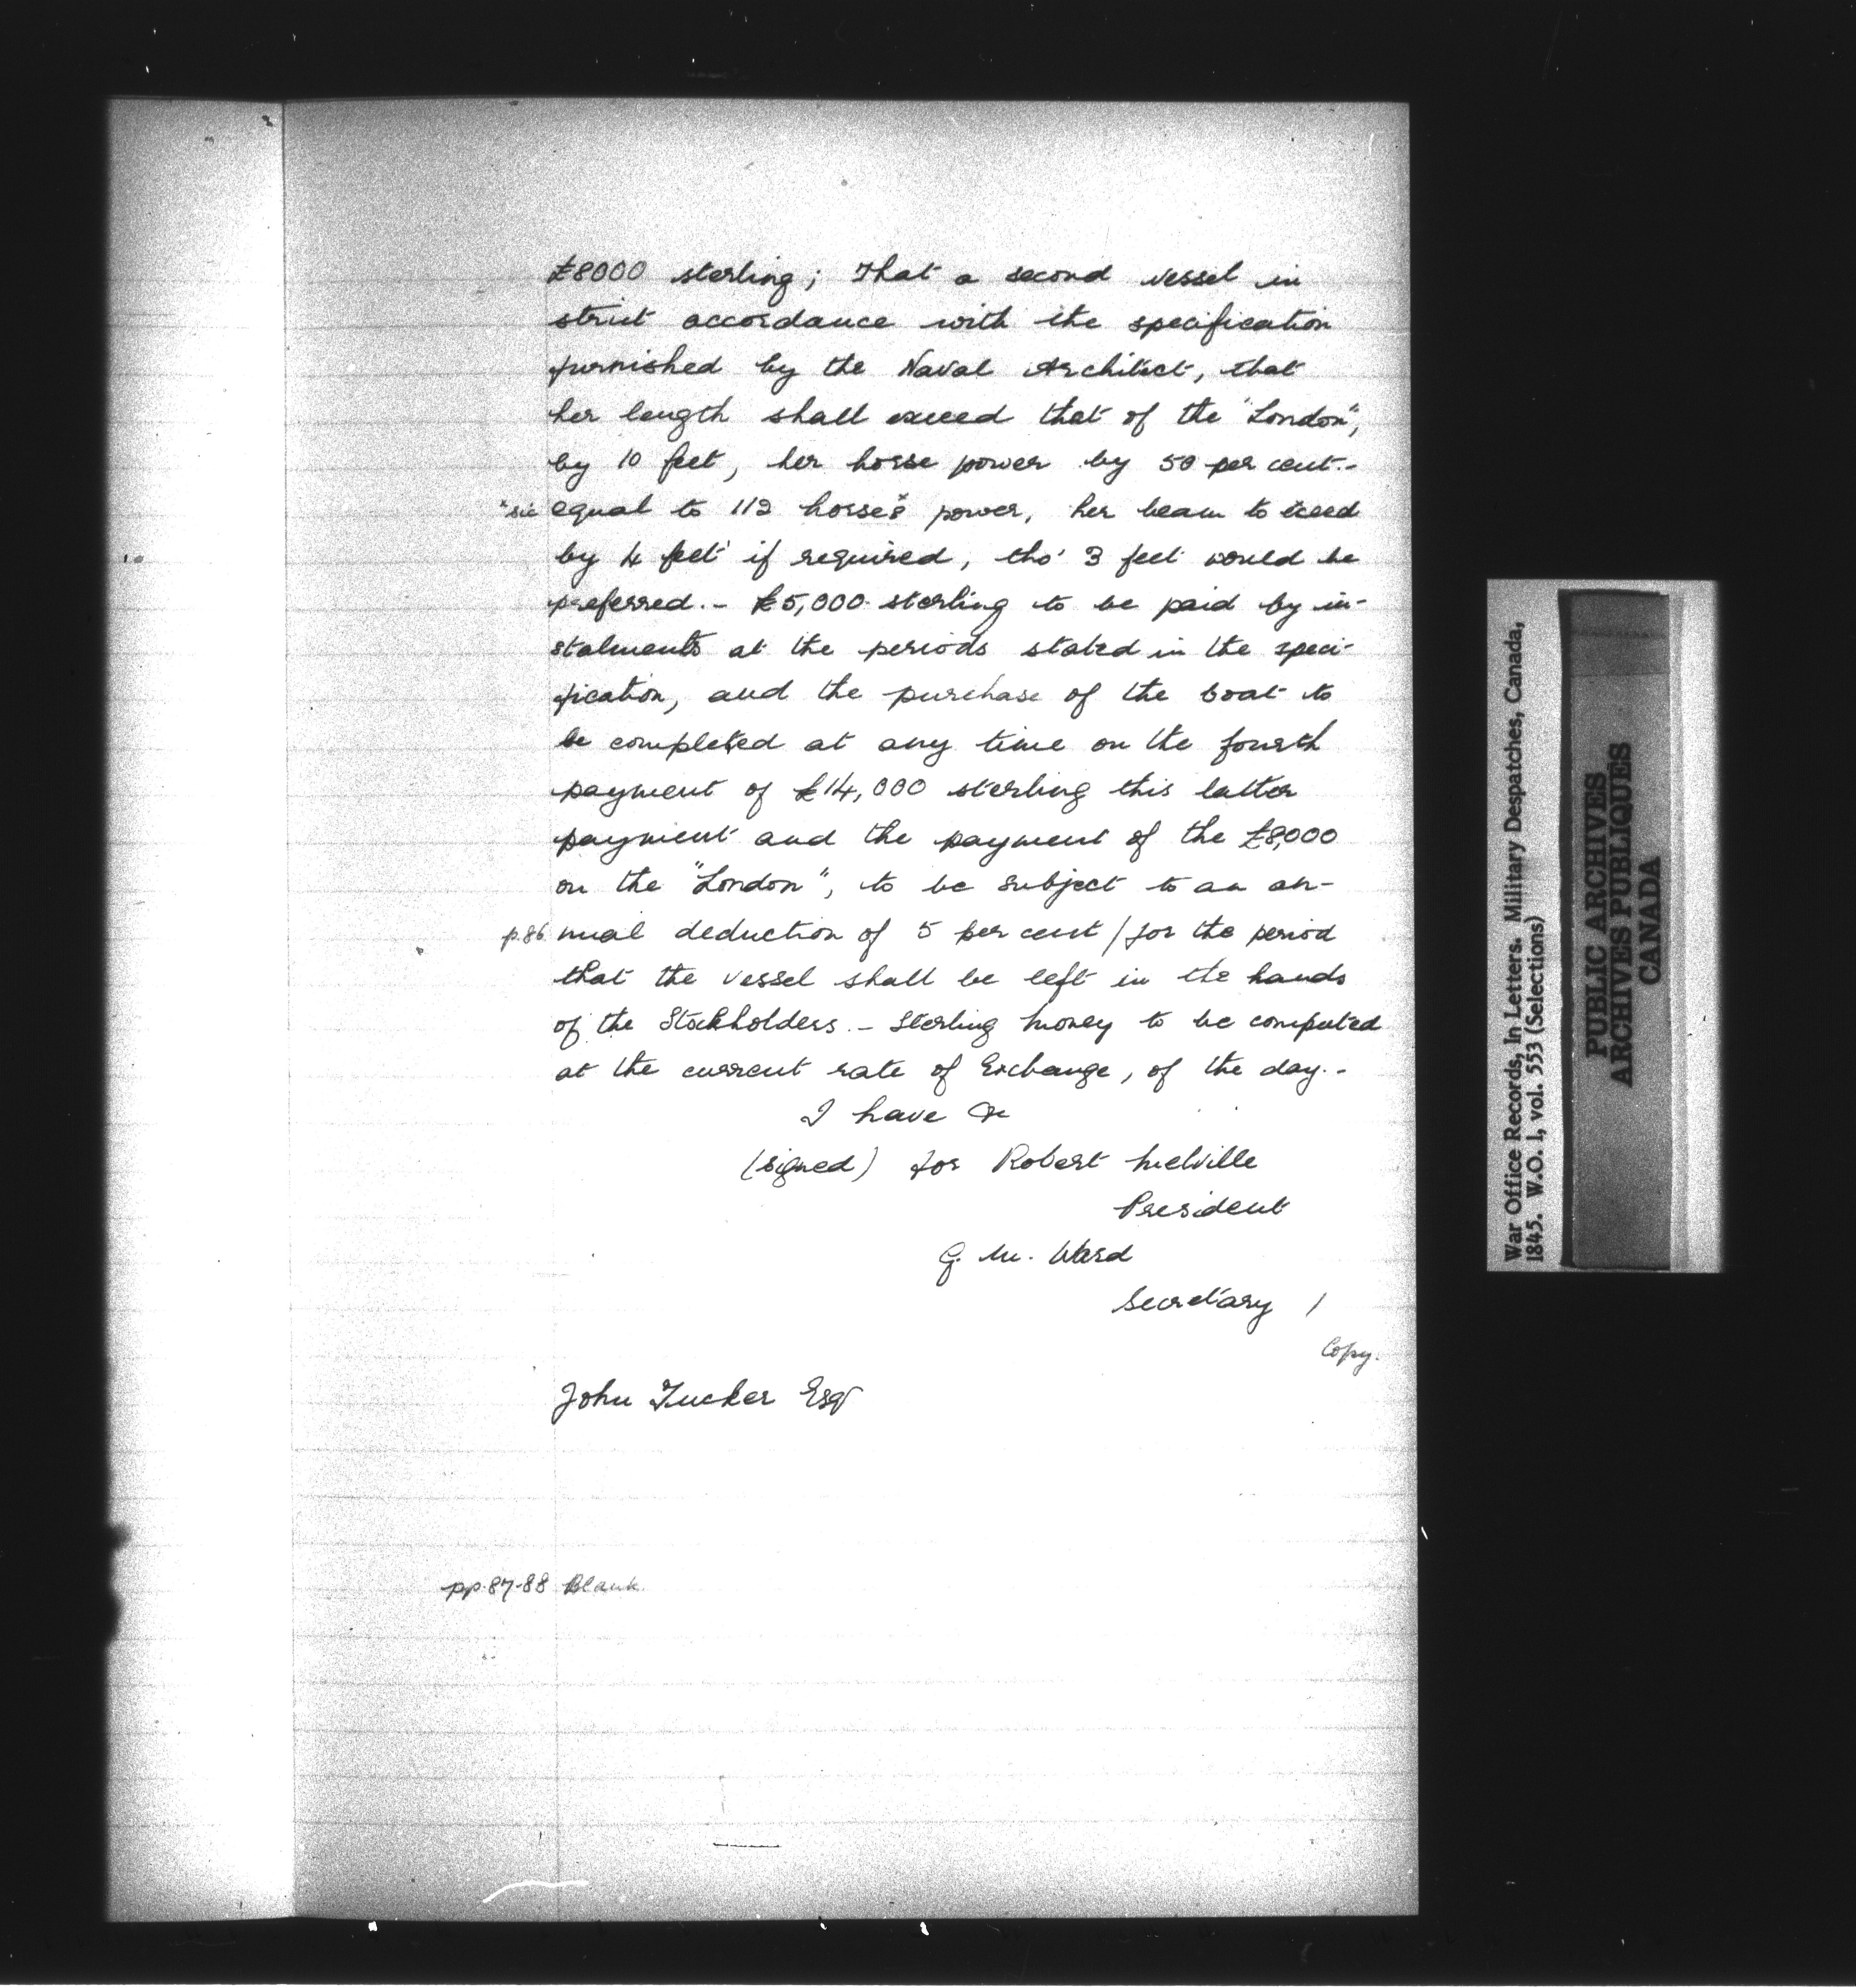 £8000 sterling; That a second vessel in
strict accordance with the specification
furnished by the Naval Architect, that
her length shall exceed that of the "London",
by 10 feet, her horse power by 50 per cent.-
*sic equal to 112 horses* power, her beam to exceed
by 4 feet if required, tho' 3 feet would be
preferred. - £5,000 sterling to be paid by in-
stalments at the periods stated in the speci-
fication, and the purchase of the boat to
be completed at any time on the fourth
payment of £14,000 sterling this latter
payment and the payment of the £8,000
on the "London", to be subject to an an-
p.86. nual deduction of 5 per cent / for the period
that the vessel shall be left in the hands
of the Stockholders. - Sterling money to be computed
at the current rate of Exchange, of the day. -
I have &c
(signed) for Robert Melville
President
G. M. Ward
Secretary /
Copy.
John Tucker Esqr
pp. 87-88 Blank.
War Office Records, In Letters. Military Despatches, Canada,
1845. W.O. 1, vol. 553 (Selections)
PUBLIC ARCHIVES
ARCHIVES PUBLIQUES
CANADA